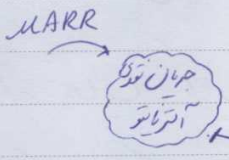 MARR
جریان نقدی
آلترناتیو